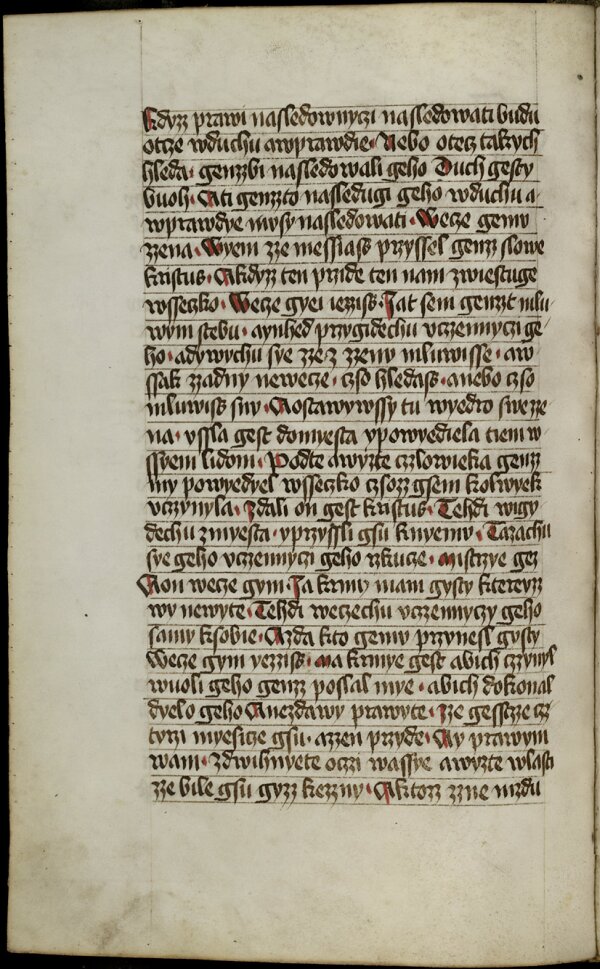 Kdyz prawi nasledownyczi nasledowati budu
otcze wduchu awprawdie · Nebo otecz takych
hleda · genzbi nasledowali geho Duch gesty
buoh · Ati genzto nasledugi geho wduchu a
wprawdye musy nasledowati · Wecze gemv
zzena · Wyem zze messiass przyssel genz slowe
kristus · Akdyz ten przide ten nam zwiestuge
wsseczko · Wecze gyei iezziss · Jat sem genzt mlu
wym stebu · aynhed przygidechu vczennyczi ge
ho · adywychu sye zze z zzeny mluwisse · aw
ssak zzadny newecze · czso hledass · anebo czso
mluwiss sny · Aostawywssy tu wyedro swe zze
na · vssla gest domyesta ypowyediela tiem w
ssyem lidom · Podte awyzte czlowieka genz
my powyedyel wsseczko czsozz gsem kolwyek
vczynyla · Zdali on gest kristus · Tehdi wigy
dechu zmyesta · yprzyssli gsu knyemv · Tazachu
sye geho vczennyczi geho rzkucze · mistrzye gez
Aon wecze gym · Ja krmy mam gysty ktereyz
wy newyte · Tehdi weczechu vczennyczy geho
samy ksobie · Azda kto gemv przynesl gysty
Wecze gym yezziss · ma krmye gest abich czynyl
wuoli geho genz poslal mye · abich dokonal
dyelo geho Anezdawy prawyte · zze gesscze cz
tyrzi myesicze gsu · azzen przyde · Ay prawym
wam · zdwihnyete oczi wassye awyzte wlasti
zze bile gsu gyzz kezzny · Aktoz zzne mzdu